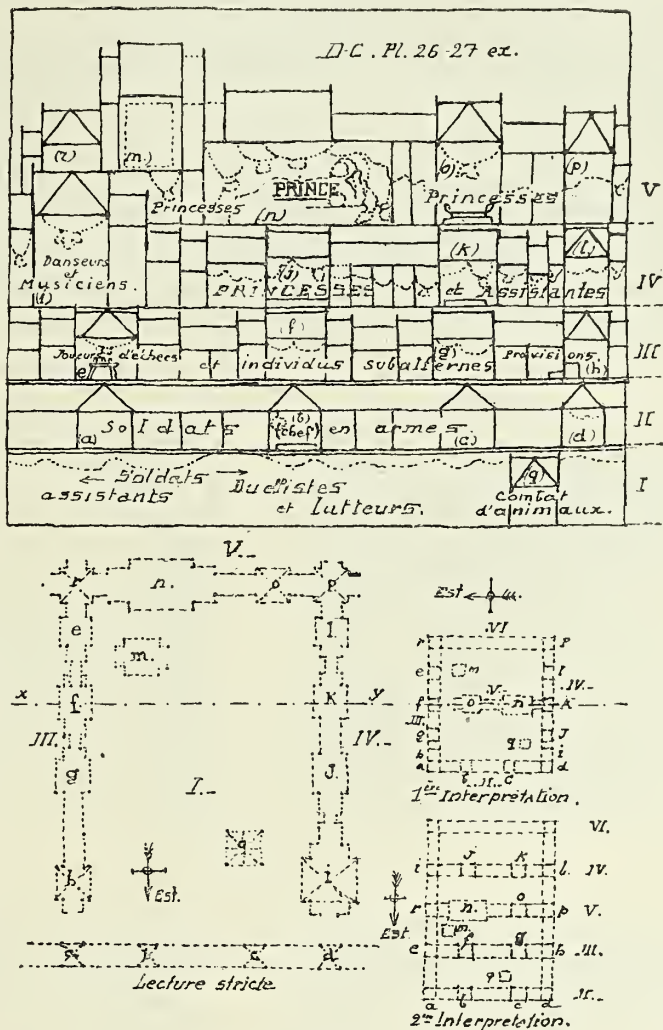 D.C. Pl. 26-27 ex.
(m.)
(o)
(p)
PRINCE
Princesses
(n)
Princesses
V
Danseurs
et
Musiciens.
(i)
(j)
(k)
(l.)
PRINCESSES
et Assistantes
IV
(f)
Joueurs d'échecs
et individus subalternes
Provisions
e
(g)
(h)
III
(a)
Soldats
(b)
(chef)
en armes.
(c)
(d)
II
← Soldats →
assistants
Duellistes
et lutteurs.
(q)
Combat
d'animaux.
I
V.
r
n.
o
p
e
m.
l.
x
f
K
y
III.
IV.
g
I.
J.
q
h
Est.
i
a
b
c
d
Lecture stricte
Est
VI
r
P
e
m
l
IV.
V.
f
o
n
K
III.
g
q
J
h
i
a
b
II.
c
d
1ère Interprétation.
VI.
i
J
K
l.
IV.
r
n.
o
p
V.
Est.
m.
e
f
g
h
III.
q
II.
a
b
c
d
2me Interprétation.